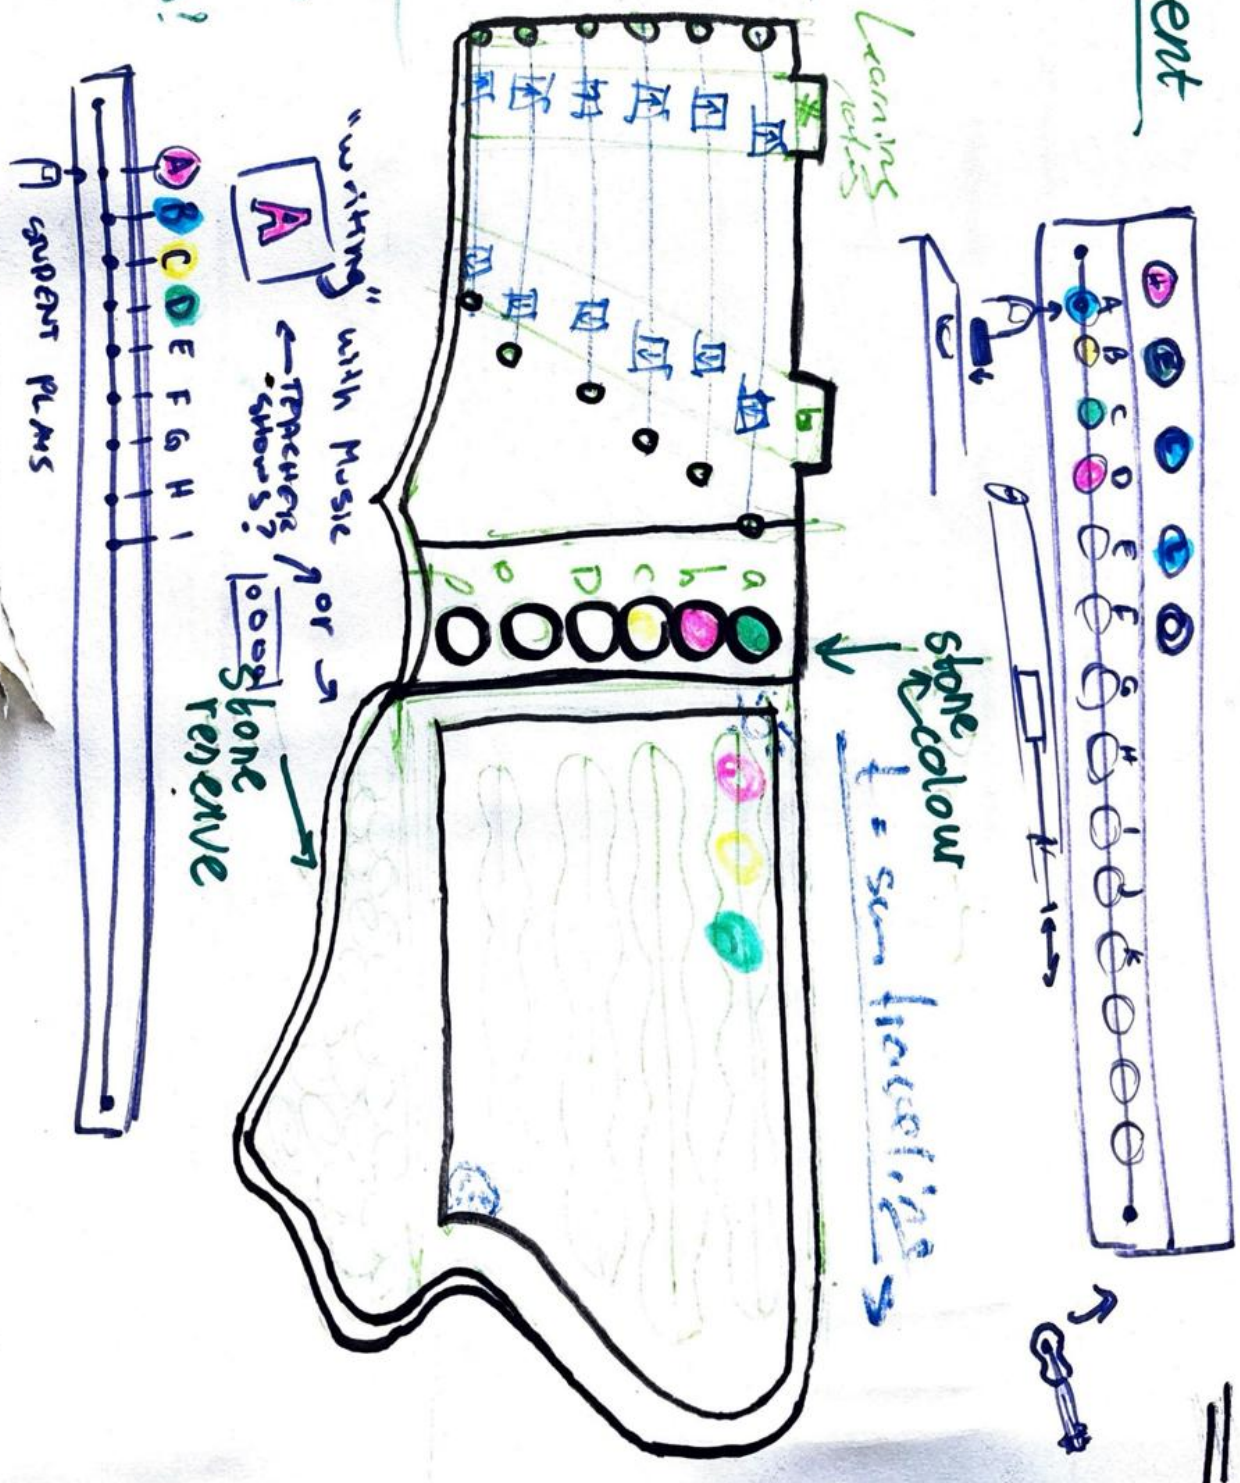 ent
A B C D E F G H I J K
Learning
# b
stone
colour
t =
a
b
c
D
e
f
"writing" with Music
or
A
← TEACHER
SHOWS?
stone
reserve
A B C D E F G H I
STUDENT PLAYS